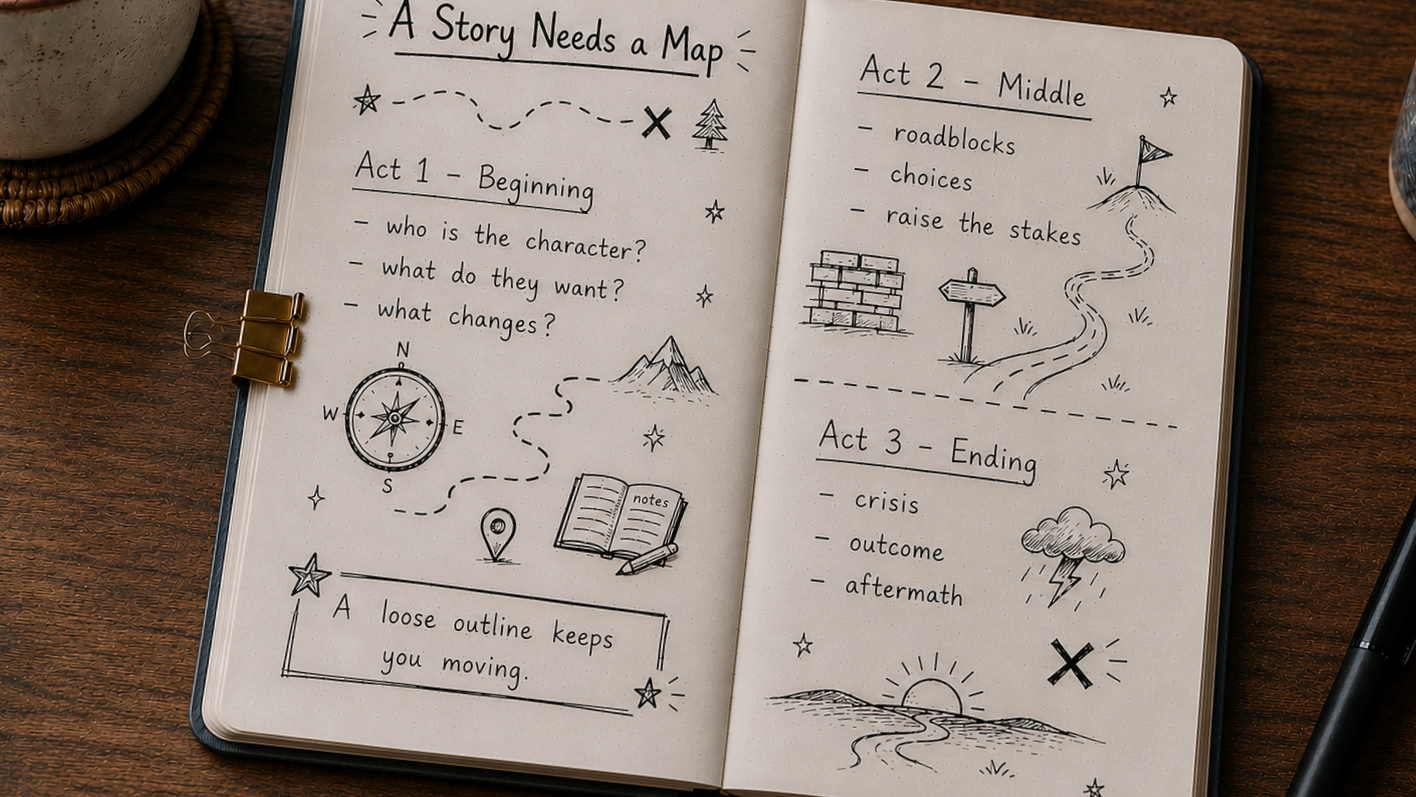 A Story Needs a Map
Act 1 – Beginning
– who is the character?
– what do they want?
– what changes?
N
W
E
S
notes
A loose outline keeps
you moving.
Act 2 – Middle
– roadblocks
– choices
– raise the stakes
Act 3 – Ending
– crisis
– outcome
– aftermath